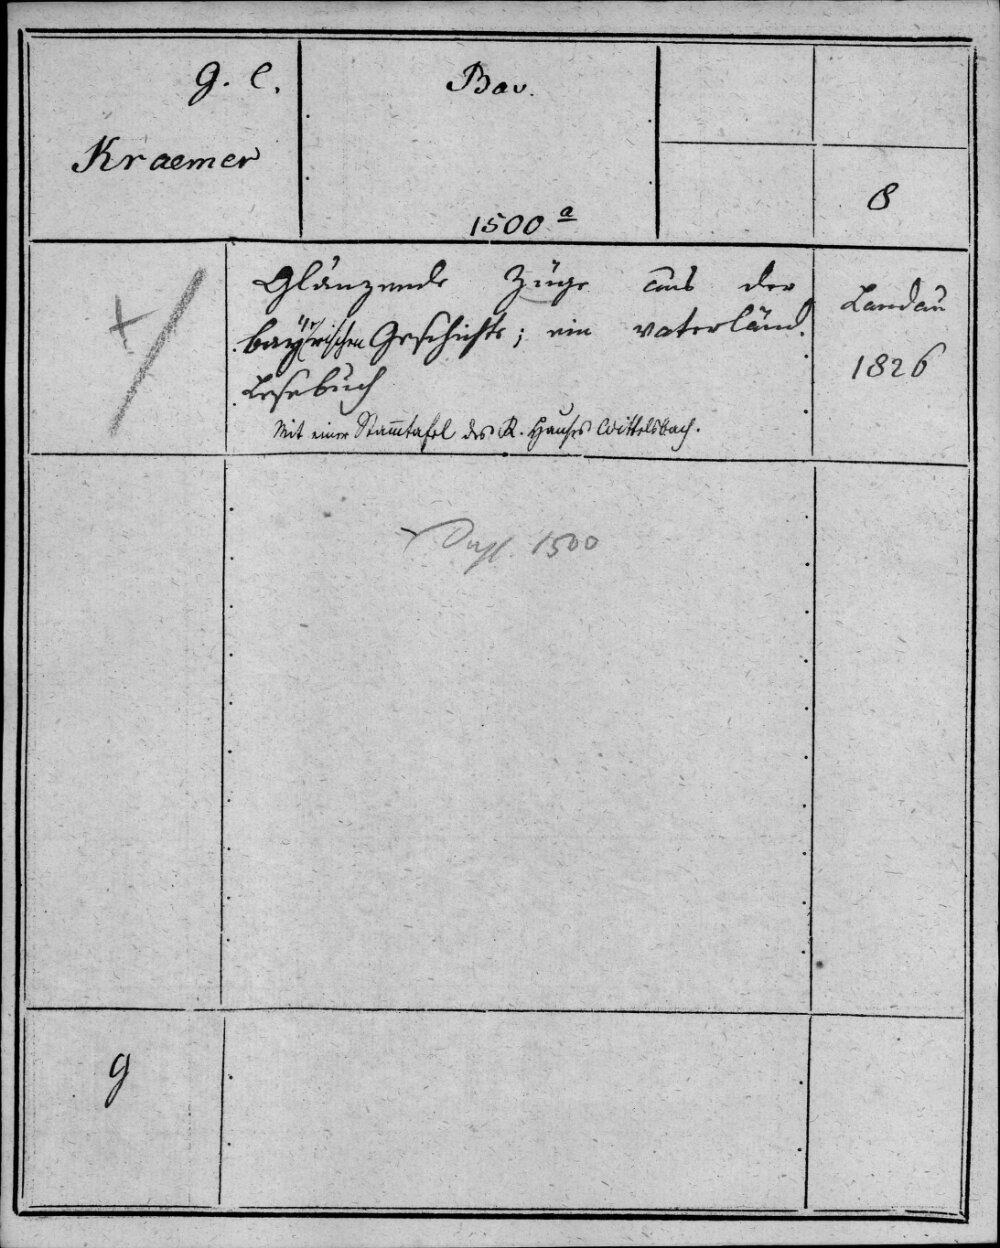 G. C.
Kraemer
Bav.
1500 a
8
Glänzende Züge aus der
bayerischen Geschichte; ein vaterländ.
Lesebuch
Mit einer Stammtafel des K. Hauses Wittelsbach.
Landau
1826
Dupl. 1500
g